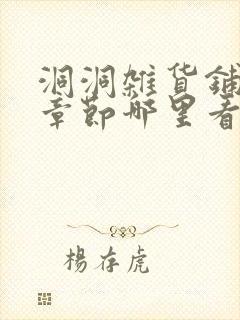 洞洞雜貨鋪
章節哪里看
楊存虎